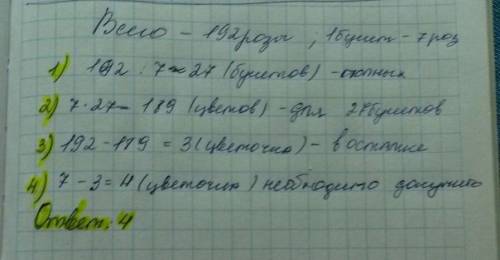 Всего – 192 розы ; 1 букет – 7 роз
1) 192 : 7 ≈ 27 (букетов) – полных
2) 7 · 27 = 189 (цветов) – для 27 букетов
3) 192 – 189 = 3 (цветочка) – в остатке
4) 7 – 3 = 4 (цветочка) необходимо
Ответ: 4